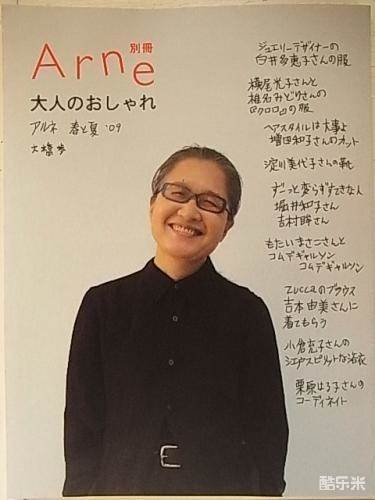 Arne
別冊
大人のおしゃれ
アルネ 春と夏 '09
大橋歩
ジュエリーデザイナーの
白井多恵子さんの服
横尾光子さんと
椎名みどりさんの
『クロロ』の服
ヘアスタイルは大事よ
増田和子さんのカット
淀川美代子さんの靴
ずーっと変らずすてきな人
堀井和子さん
吉村眸さん
もたいまさこさんと
コムデギャルソン
コムデギャルソン
ZUCCaのブラウス
吉本由美さんに
着てもらう
小倉充子さんの
江戸スピリットな浴衣
栗原はる子さんの
コーディネイト
酷乐米